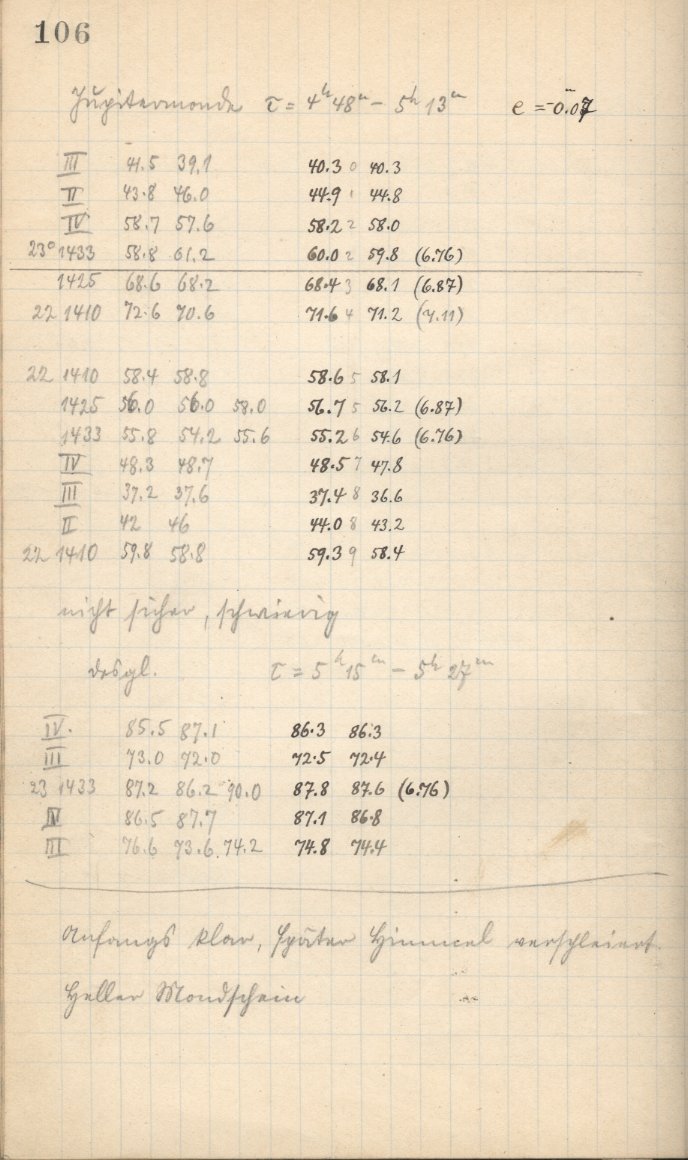 106
Jupitermonde τ = 4ʰ 48ᵐ – 5ʰ 13ᵐ e = -0.07ᵐ
III 41.5 39.1 40.3 0 40.3
II 43.8 46.0 44.9 1 44.8
IV 58.7 57.6 58.2 2 58.0
23° 1433 58.8 61.2 60.0 2 59.8 (6.76)
1425 68.6 68.2 68.4 3 68.1 (6.87)
22 1410 72.6 70.6 71.6 4 71.2 (7.11)
22 1410 58.4 58.8 58.6 5 58.1
1425 56.0 56.0 58.0 56.7 5 56.2 (6.87)
1433 55.8 54.2 55.6 55.2 6 54.6 (6.76)
IV 48.3 48.7 48.5 7 47.8
III 37.2 37.6 37.4 8 36.6
II 42 46 44.0 8 43.2
22 1410 59.8 58.8 59.3 9 58.4
nicht sicher, schwierig
desgl. τ = 5ʰ 15ᵐ – 5ʰ 27ᵐ
IV. 85.5 87.1 86.3 86.3
III 73.0 72.0 72.5 72.4
23 1433 87.2 86.2 90.0 87.8 87.6 (6.76)
IV 86.5 87.7 87.1 86.8
III 76.6 73.6 74.2 74.8 74.4
Anfangs klar, später Himmel verschleiert.
Heller Mondschein